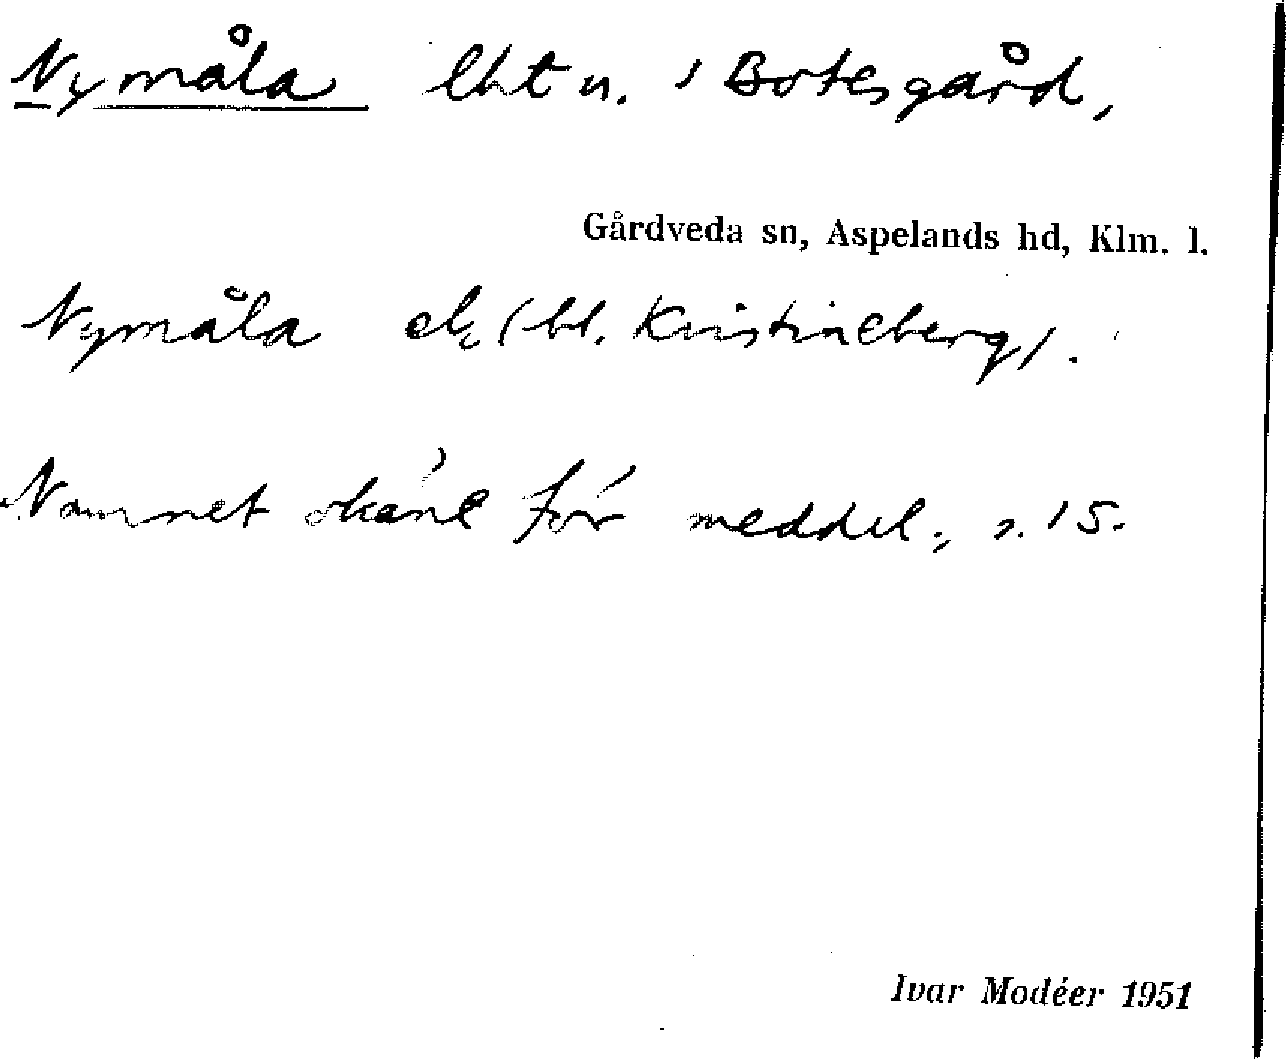 Nymåla lht u. Botesgård,
Gårdveda sn, Aspelands hd, Klm. l.
Nymåla ek (bl. Kristineberg).
Namnet okänt för meddel., s. 15.
Ivar Modéer 1951